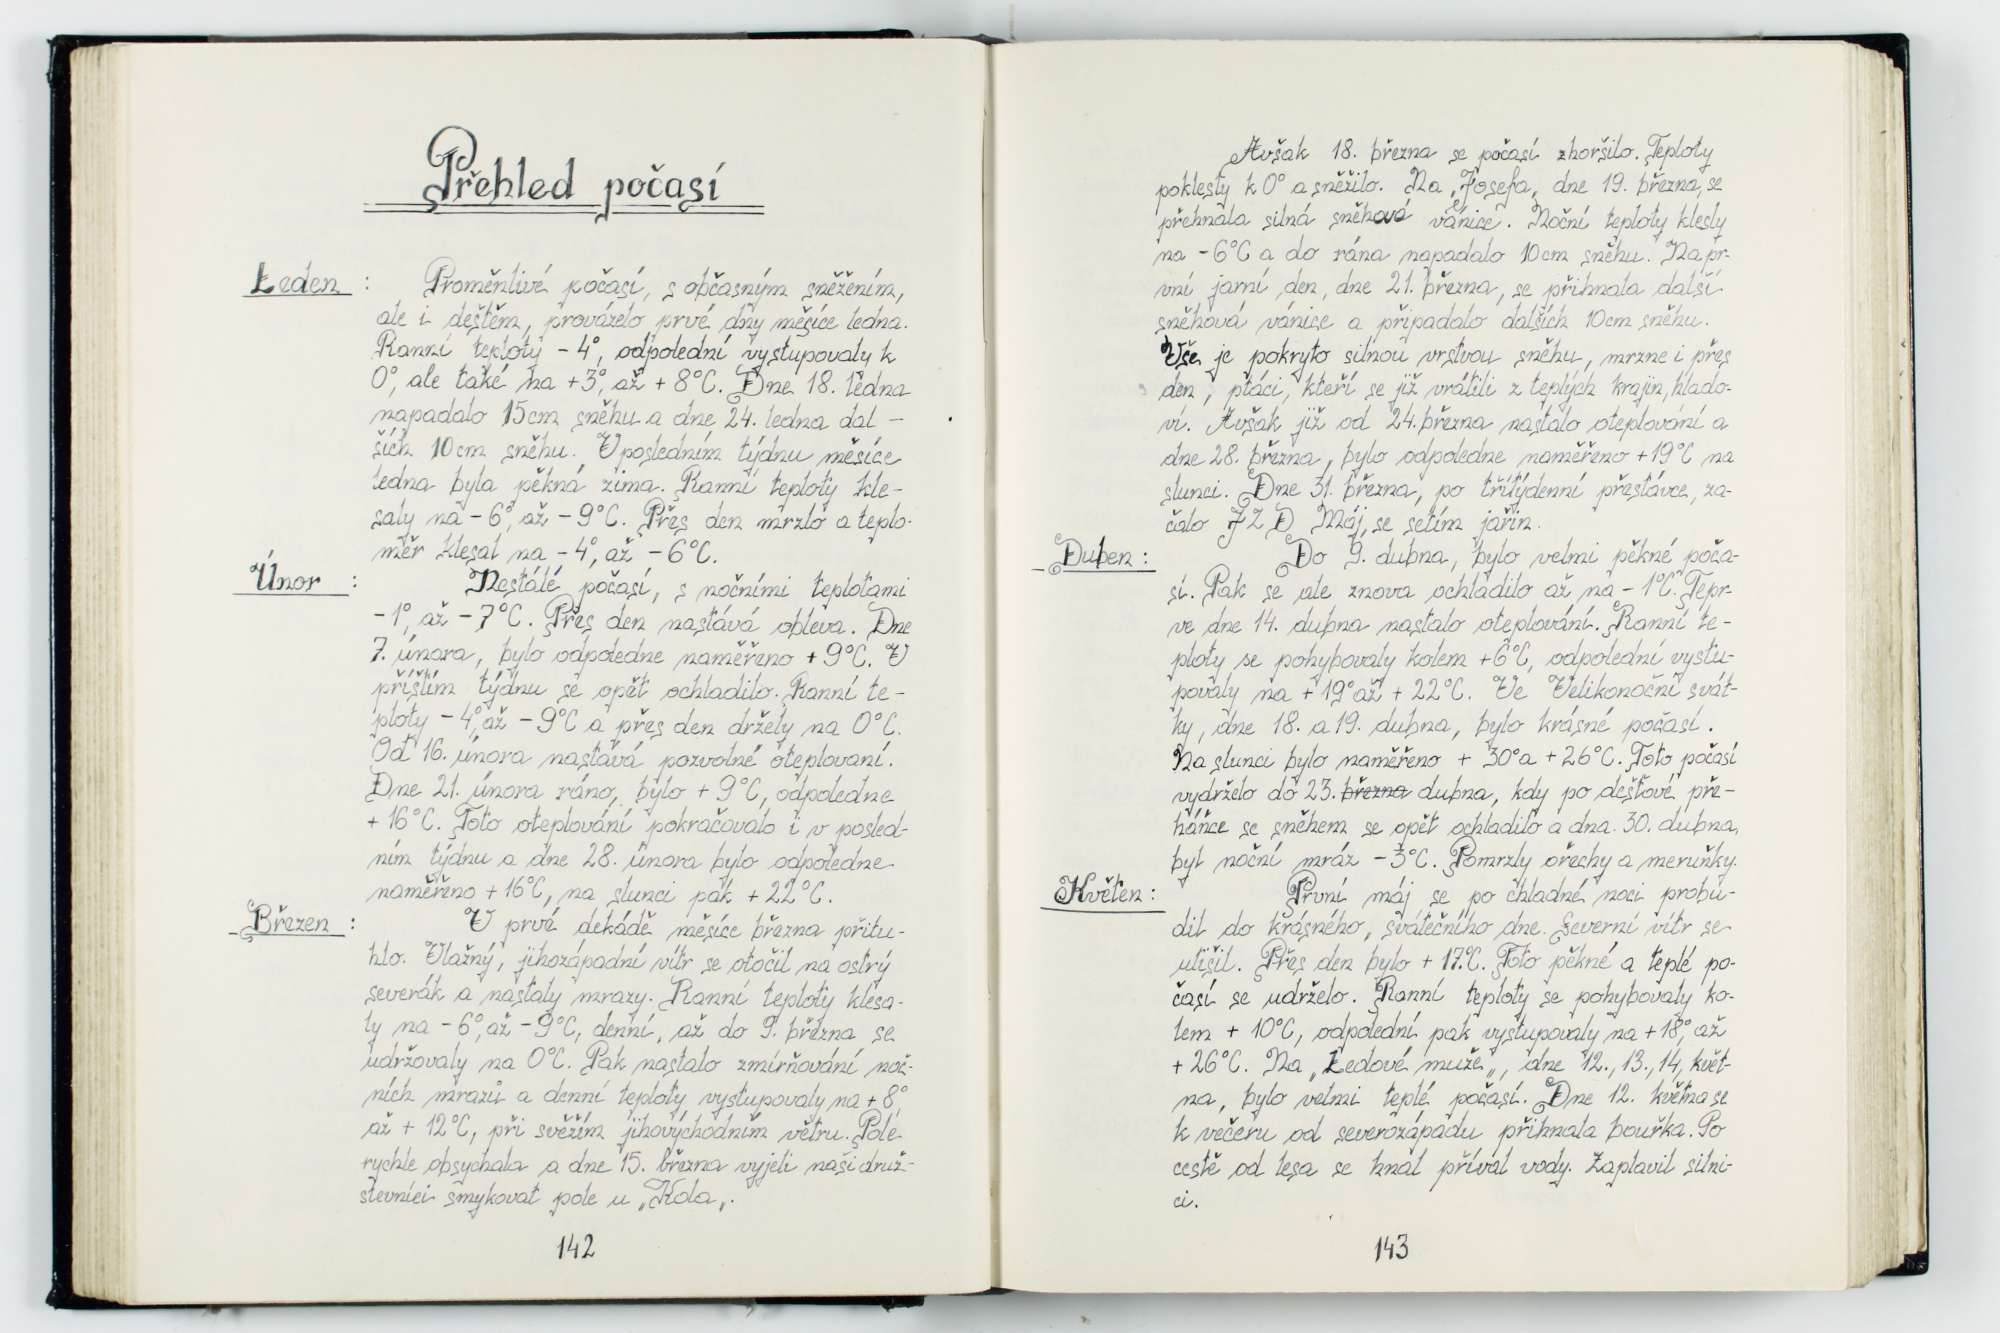 Přehled počasí
Leden : Proměnlivé počasí, s občasným sněžením,
ale i deštěm, provázelo prvé dny měsíce ledna.
Ranní teploty -4°, odpolední vystupovaly k
0°, ale také na +3°, až +8°C. Dne 18. ledna
napadalo 15cm sněhu a dne 24. ledna dal-
ších 10cm sněhu. V posledním týdnu měsíce
ledna byla pěkná zima. Ranní teploty kle-
saly na -6°, až -9°C. Přes den mrzlo a teplo-
měr klesal na -4°, až -6°C.
Únor : Nestálé počasí, s nočními teplotami
-1°, až -7°C. Přes den nastává obleva. Dne
7. února, bylo odpoledne naměřeno +9°C. V
příštím týdnu se opět ochladilo. Ranní te-
ploty -4°, až -9°C a přes den držely na 0°C.
Od 16. února nastává pozvolné oteplovaní.
Dne 21. února ráno, bylo +9°C, odpoledne
+16°C. Toto oteplování pokračovalo i v posled-
ním týdnu a dne 28. února bylo odpoledne
naměřeno +16°C, na slunci pak +22°C.
Březen : V prvé dekádě měsíce března přitu-
hlo. Vlažný, jihozápadní vítr se otočil na ostrý
severák a nastaly mrazy. Ranní teploty klesa-
ly na -6°, až -9°C, denní, až do 9. března se
udržovaly na 0°C. Pak nastalo zmírňování noč-
ních mrazů a denní teploty vystupovaly na +8°
až +12°C, při svěžím jihovýchodním větru. Pole
rychle obsychala a dne 15. března vyjeli naši druž-
stevníci smykovat pole u „Kola„.
142
Avšak 18. března se počasí zhoršilo. Teploty
poklesly k 0° a sněžilo. Na „Josefa„ dne 19. března, se
přehnala silná sněhová vánice. Noční teploty klesly
na -6°C a do rána napadalo 10cm sněhu. Na pr-
vní jarní den, dne 21. března, se přihnala další
sněhová vánice a připadalo dalších 10cm sněhu.
Vše je pokryto silnou vrstvou sněhu, mrzne i přes
den, ptáci, kteří se již vrátili z teplých krajin, hlado-
ví. Avšak již od 24. března nastalo oteplování a
dne 28. března, bylo odpoledne naměřeno +19°C na
slunci. Dne 31. března, po třítýdenní přestávce, za-
čalo JZD Máj, se setím jařin.
Duben : Do 9. dubna, bylo velmi pěkné poča-
sí. Pak se ale znova ochladilo až na -1°C. Tepr-
ve dne 14. dubna nastalo oteplování. Ranní te-
ploty se pohybovaly kolem +6°C, odpolední vystu-
povaly na +19° až +22°C. Ve Velikonoční svát-
ky, dne 18. a 19. dubna, bylo krásné počasí.
Na slunci bylo naměřeno +30° a +26°C. Toto počasí
vydrželo do 23. března dubna, kdy po dešťové pře-
háňce se sněhem se opět ochladilo a dna. 30. dubna,
byl noční mráz -3°C. Pomrzly ořechy a meruňky.
Květen : První máj se po chladné noci probu-
dil do krásného, svátečního dne. Severní vítr se
utišil. Přes den bylo +17°C. Toto pěkné a teplé po-
časí se udrželo. Ranní teploty se pohybovaly ko-
lem +10°C, odpolední pak vystupovaly na +18°, až
+26°C. Na „Ledové muže„, dne 12., 13., 14, květ-
na, bylo velmi teplé počasí. Dne 12. května se
k večeru od severozápadu přihnala bouřka. Po
cestě od lesa se hnal příval vody. Zaplavil silni-
ci.
143